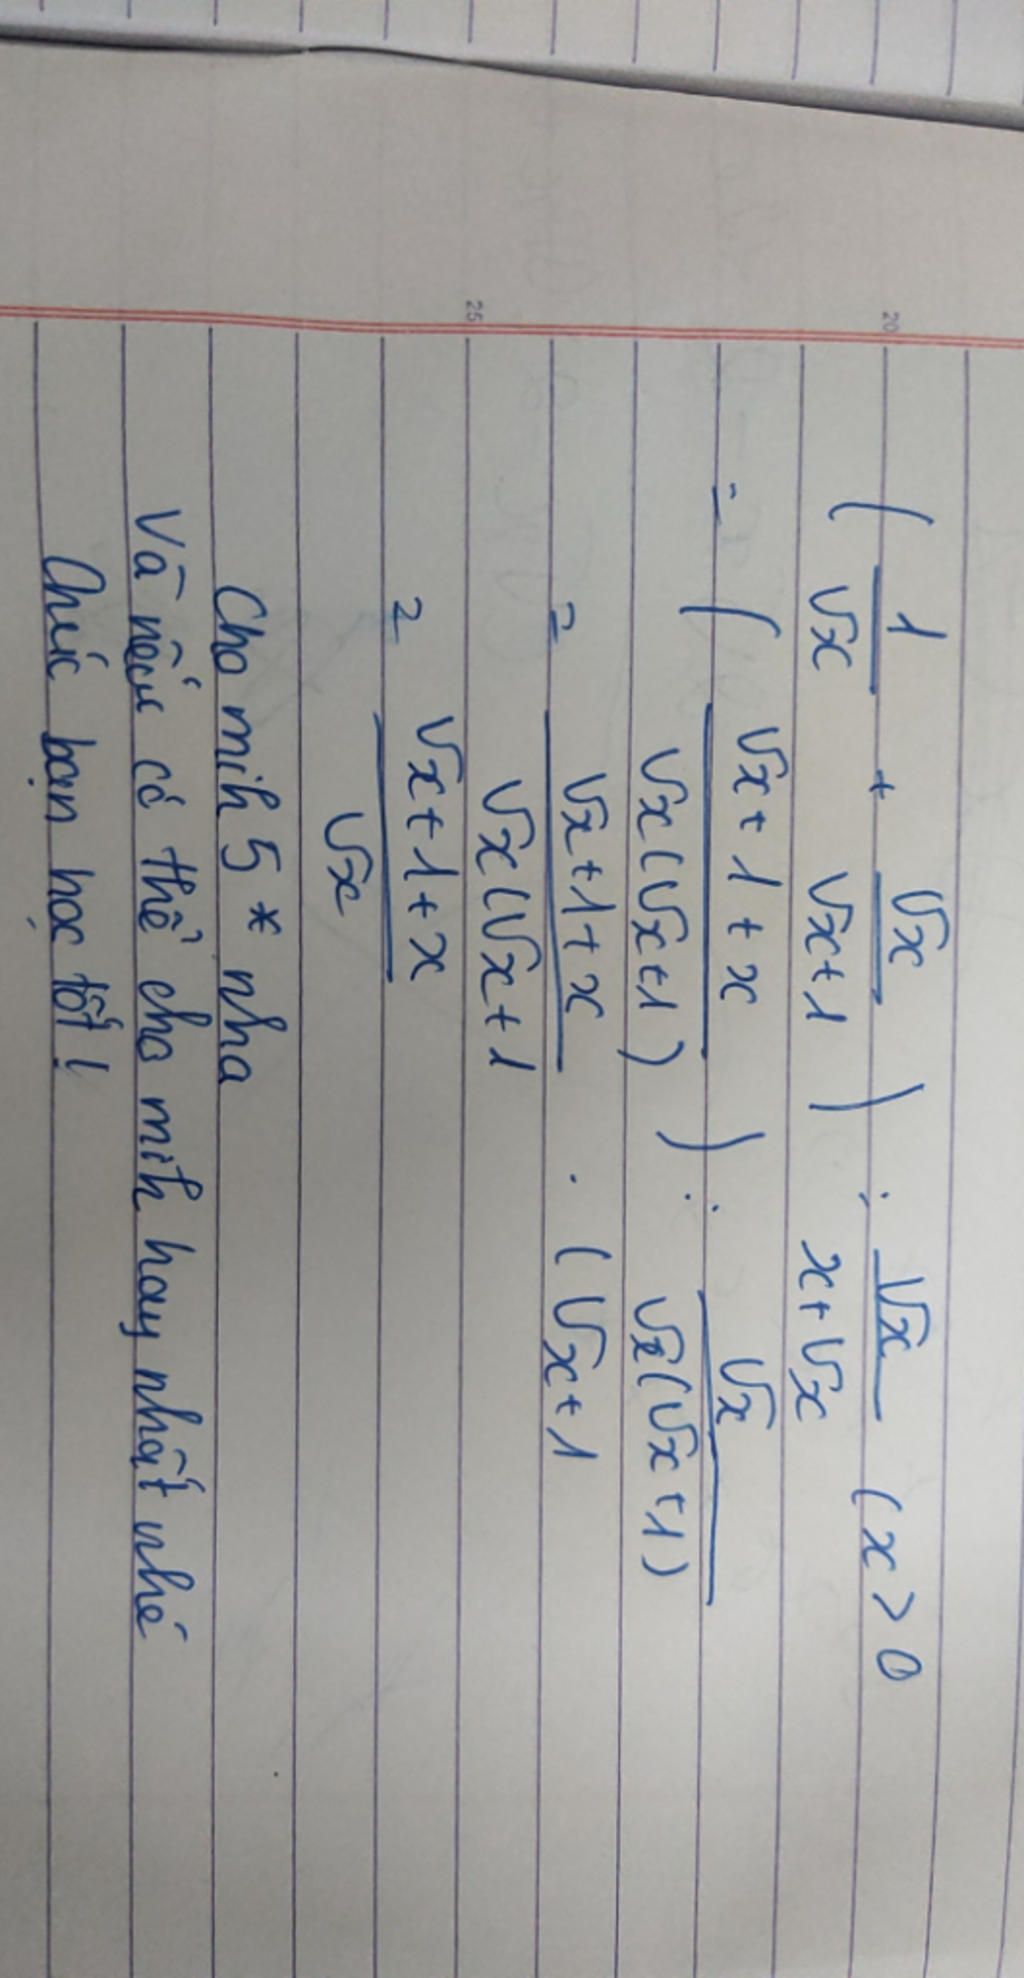 ( 1/√x + √x/√x+1 ) : √x/x+√x (x > 0
= ( √x+1+x/√x(√x+1) ) : √x/√x(√x+1)
= √x+1+x/√x(√x+1 . (√x+1
= √x+1+x/√x
Cho mih 5 * nha
Và nếu có thể cho mih hay nhất nhé
Chúc bạn học tốt!
20
25